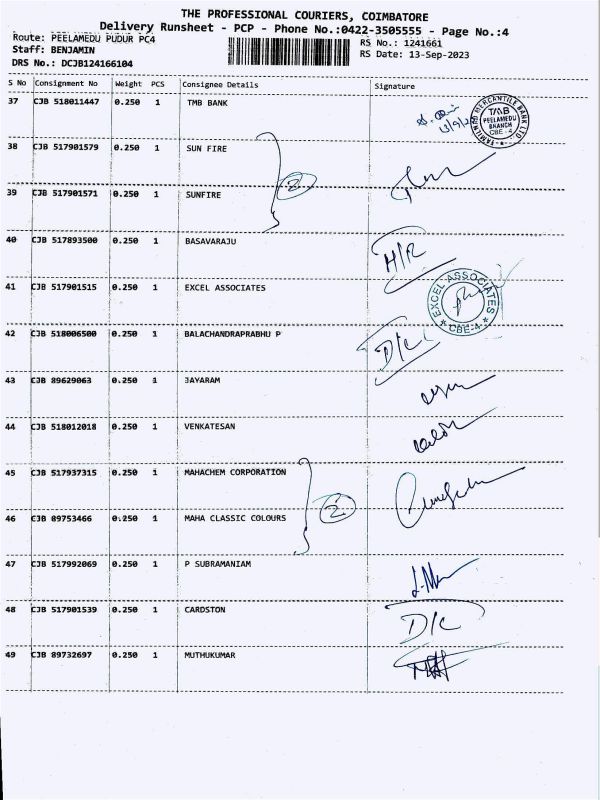 THE PROFESSIONAL COURIERS, COIMBATORE
Delivery Runsheet - PCP - Phone No.:0422-3505555 - Page No.:4
Route: PEELAMEDU PUDUR PC4
RS No.: 1241661
Staff: BENJAMIN
RS Date: 13-Sep-2023
DRS No.: DCJB124166104
S No Consignment No Weight PCS Consignee Details Signature
37 CJB 518011447 0.250 1 TMB BANK
TAMILNAD MERCANTILE BANK LTD.
TMB
PEELAMEDU
BRANCH
CBE - 4
38 CJB 517901579 0.250 1 SUN FIRE
2
39 CJB 517901571 0.250 1 SUNFIRE
40 CJB 517893500 0.250 1 BASAVARAJU
H/R
41 CJB 517901515 0.250 1 EXCEL ASSOCIATES
EXCEL ASSOCIATES
CBE-4
42 CJB 518006500 0.250 1 BALACHANDRAPRABHU P
D/C
43 CJB 89629063 0.250 1 JAYARAM
44 CJB 518012018 0.250 1 VENKATESAN
45 CJB 517937315 0.250 1 MAHACHEM CORPORATION
2
46 CJB 89753466 0.250 1 MAHA CLASSIC COLOURS
47 CJB 517992069 0.250 1 P SUBRAMANIAM
48 CJB 517901539 0.250 1 CARDSTON
D/C
49 CJB 89732697 0.250 1 MUTHUKUMAR